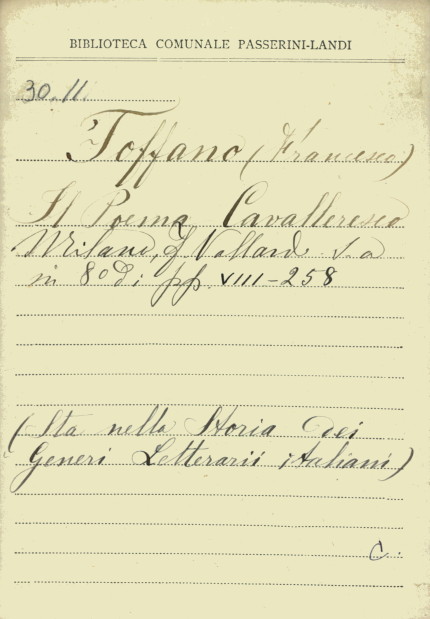 BIBLIOTECA COMUNALE PASSERINI-LANDI
30.11.
Toffano (Francesco)
Il Poema Cavalleresco
Milano, F Vallardi s.a
in 8º di pp. VIII-258
(Sta nella Storia dei
Generi Letterarii italiani)
C.